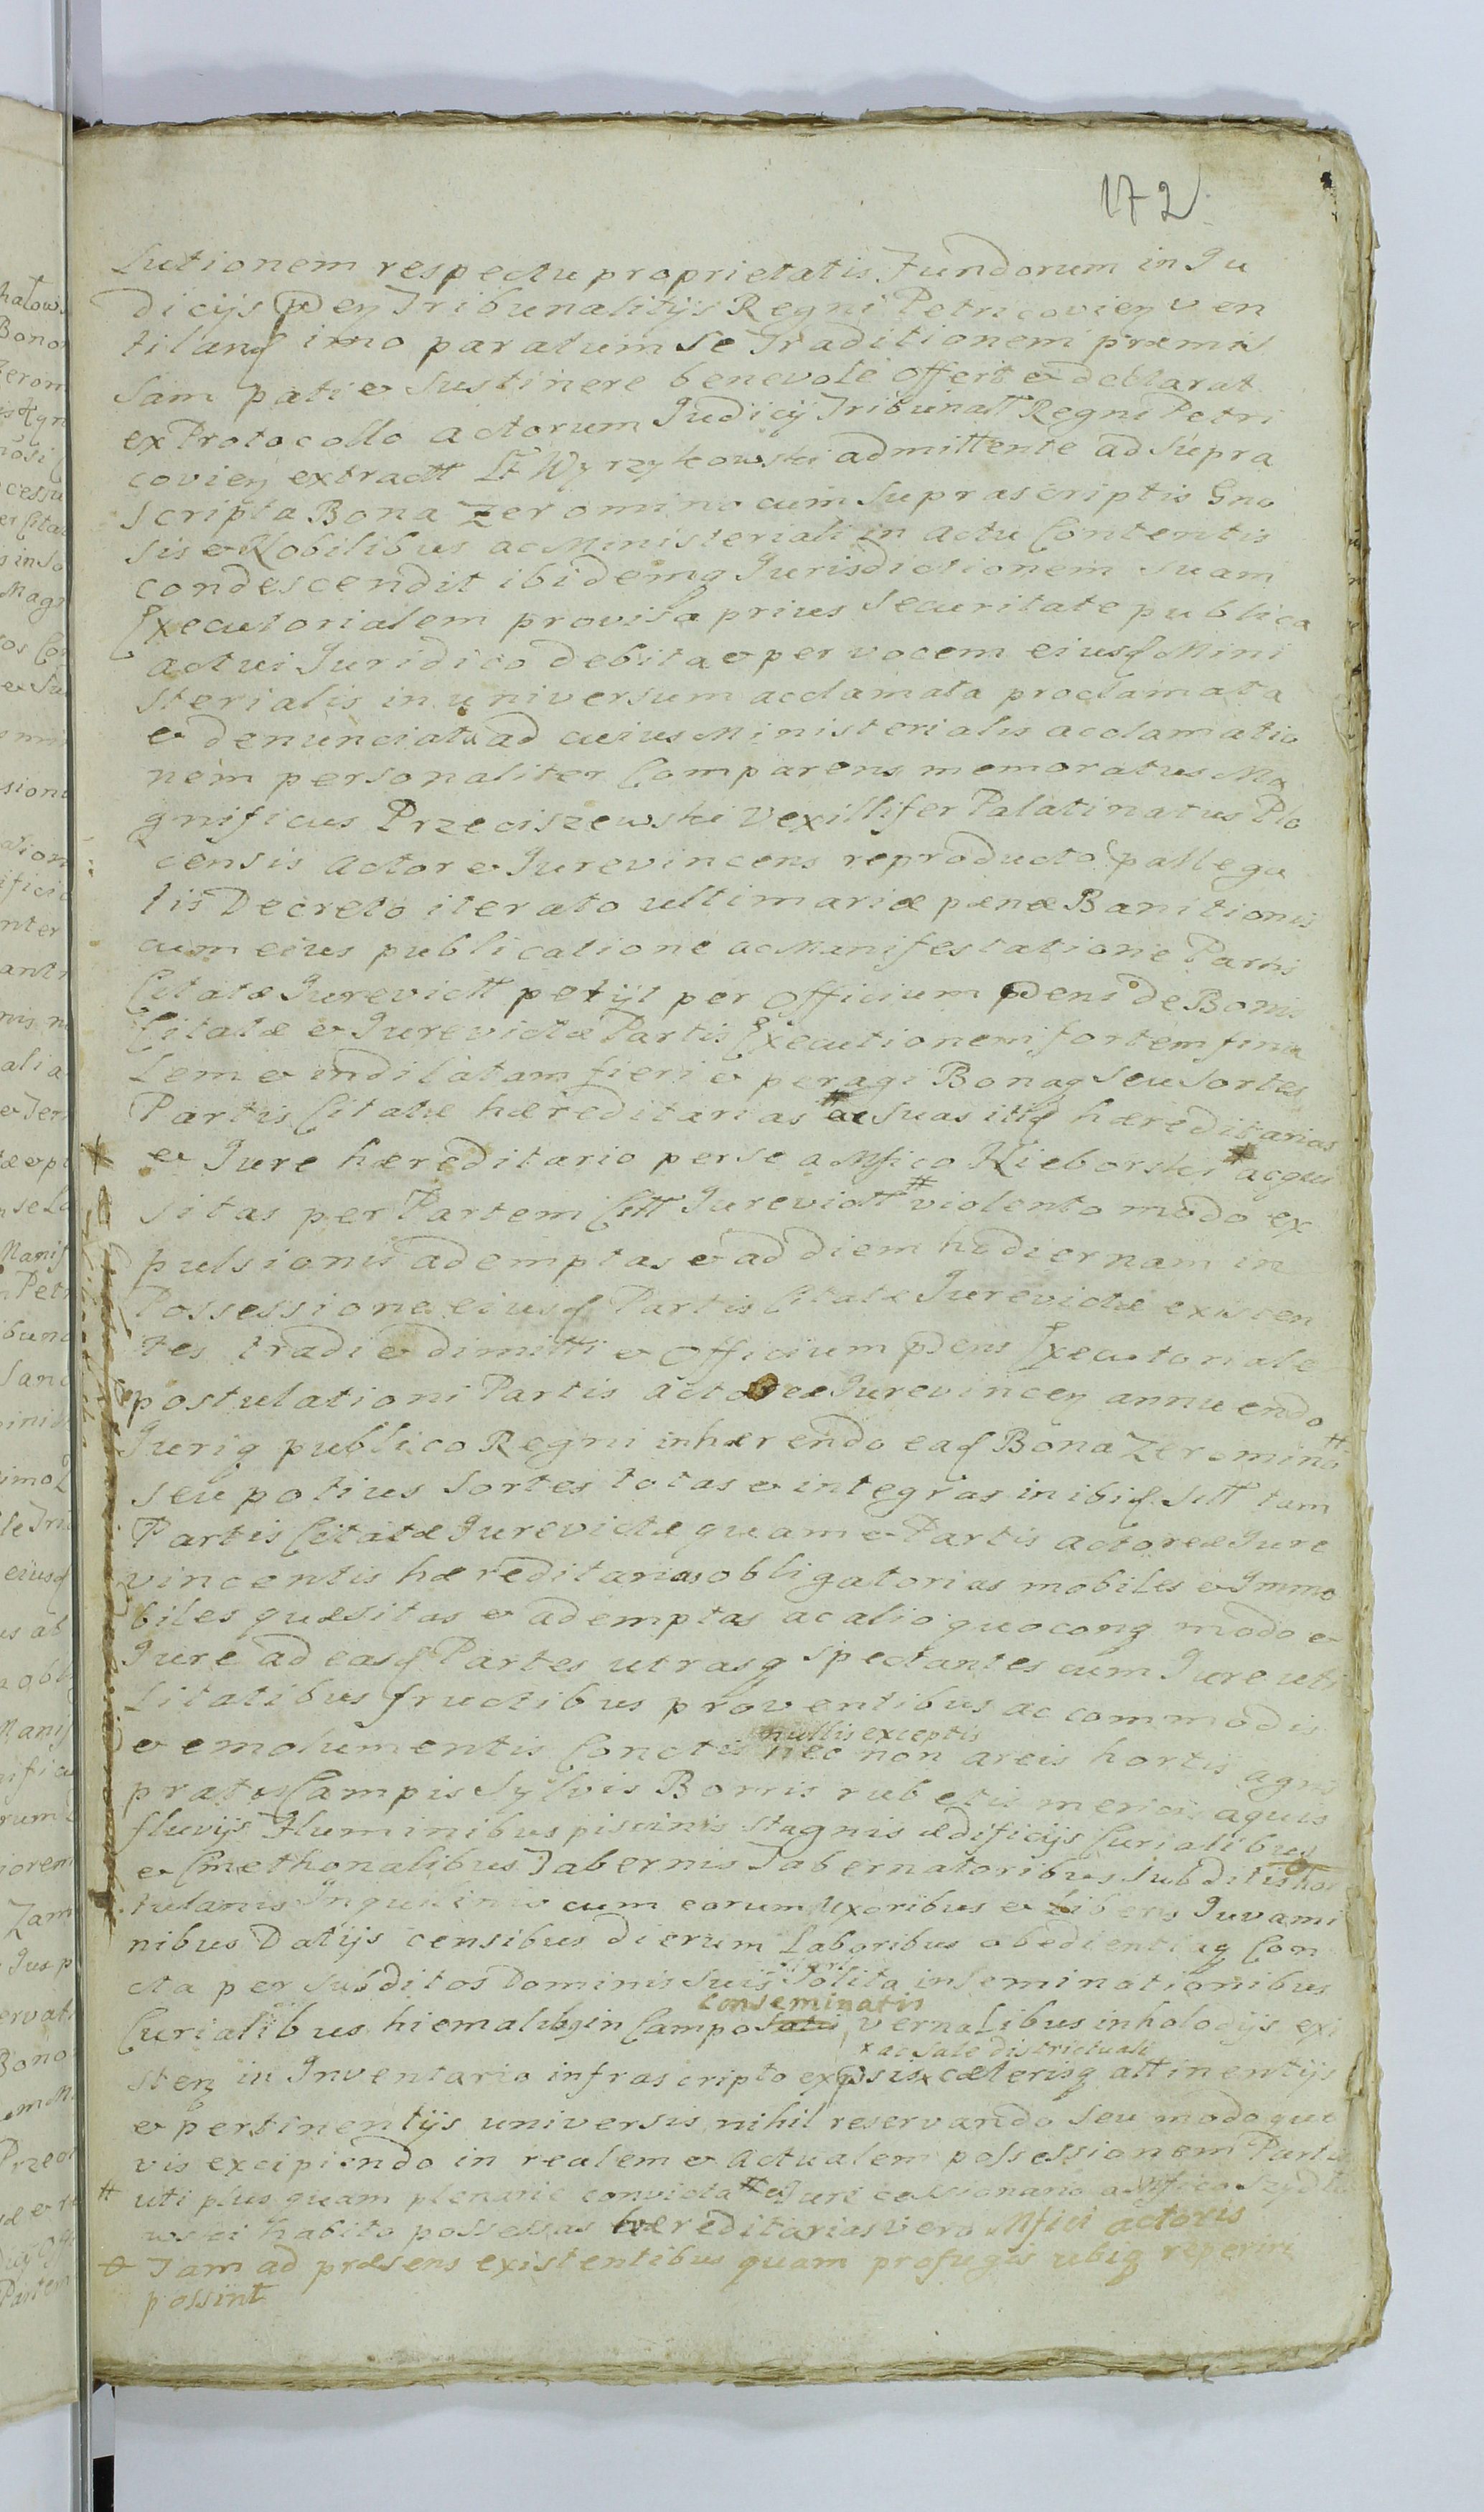 172
lutionem respectu proprietatis Fundorum in Ju
dicijs pden Tribunalitijs Regni Petricovien ven
tiland imo paratum se Traditionem præmis
sam pati & sustinere benevole offert & declarat
ex Protocollo actorum Judicij Tribunall Regni Petri
covien extractt Wyrzykowski admittente ad supra
scripta Bona Zeromino cum suprascriptis Gno
sis & Nobilibus ac Ministeriali in actu Contentis
condescendit ibidemq Jurisdictionem suam
Executorialem provisa prius securitate publica
actui Juridico debita & per vocem eiusd Mini
sterialis in universum acclamata proclamata
& denunciata ad cuius Ministerialis acclamatio
nem personaliter Comparens memoratus Ma
gnificus Przeciszewski Vexillifer Palatinatus Plo
censis Actor & Jurevincens reproducto palega
lis Decreto iterato ultimariæ pænæ Banitionis
cum eius publicatione ac Manifestatione Partis
Citatæ Jurevictt petijt per Officium pdens de Bonis
Citatæ & Jurevictæ Partis Executionem fortem fina
lem & indilatam fieri & peragi Bonaq seu Sortes
Partis Citatæ hæreditarias # ac suas itid hæreditarias
& Jure hæreditario per se a Mfico Kieborski # acqui
sitas per Partem Citt Jurevictt # violento modo ex
pulsionis ademptas & ad diem hodiernam in
Possessione eiusd Partis Citatæ Jurevictæ existen
tes tradi & dimitti & Officium pdens Executoriale
postulationi Partis actoreæ Jurevincen annuendo
Juriq publico Regni inhærendo ead Bona Zeromino #
seu potius Sortes totas & integras in ibid sitt tam
Partis Citatæ Jurevictæ quam & Partis actoreæ Jure
vincentis hæreditarias obligatorias mobiles & Immo
biles quæsitas & ademptas ac alio quoconq modo &
Jure ad easd Partes utrasq spectantes cum Jure uti
litatibus fructibus proventibus ac commodis
nullis exceptis
& emolumentis Conctis nec non areis hortis agris
pratis Campis Sylvis Borris rubetis mericis aquis
fluvijs Fluminibus piscinis stagnis ædificijs Curialibus
& Cmethonalibus Tabernis Tabernatoribus Subditis hor
tulanis Inquilinis cum eorum Uxoribus & Liberis Juvami
nibus Datijs censibus dierum Laboribus obedientiaq Con
cta per subditos Dominis suis solita inseminationibus
conseminatis
Curialibus hiemalibq in Campo satis vernalibus in holodijs exi
x ac sale districtuali
sten in Inventario infrascripto expsis x cæterisq attinentijs
& pertinentijs universis nihil reservando seu modo quo
vis excipiendo in realem & actualem possessionem Partis
# uti plus quam plenarie convicta # & Jure cessionario a Mfico Szydło
wski habito possessas hæreditarias vero Mfici actoris
Jam ad præsens existentibus quam profugis ubiq reperiri
possint